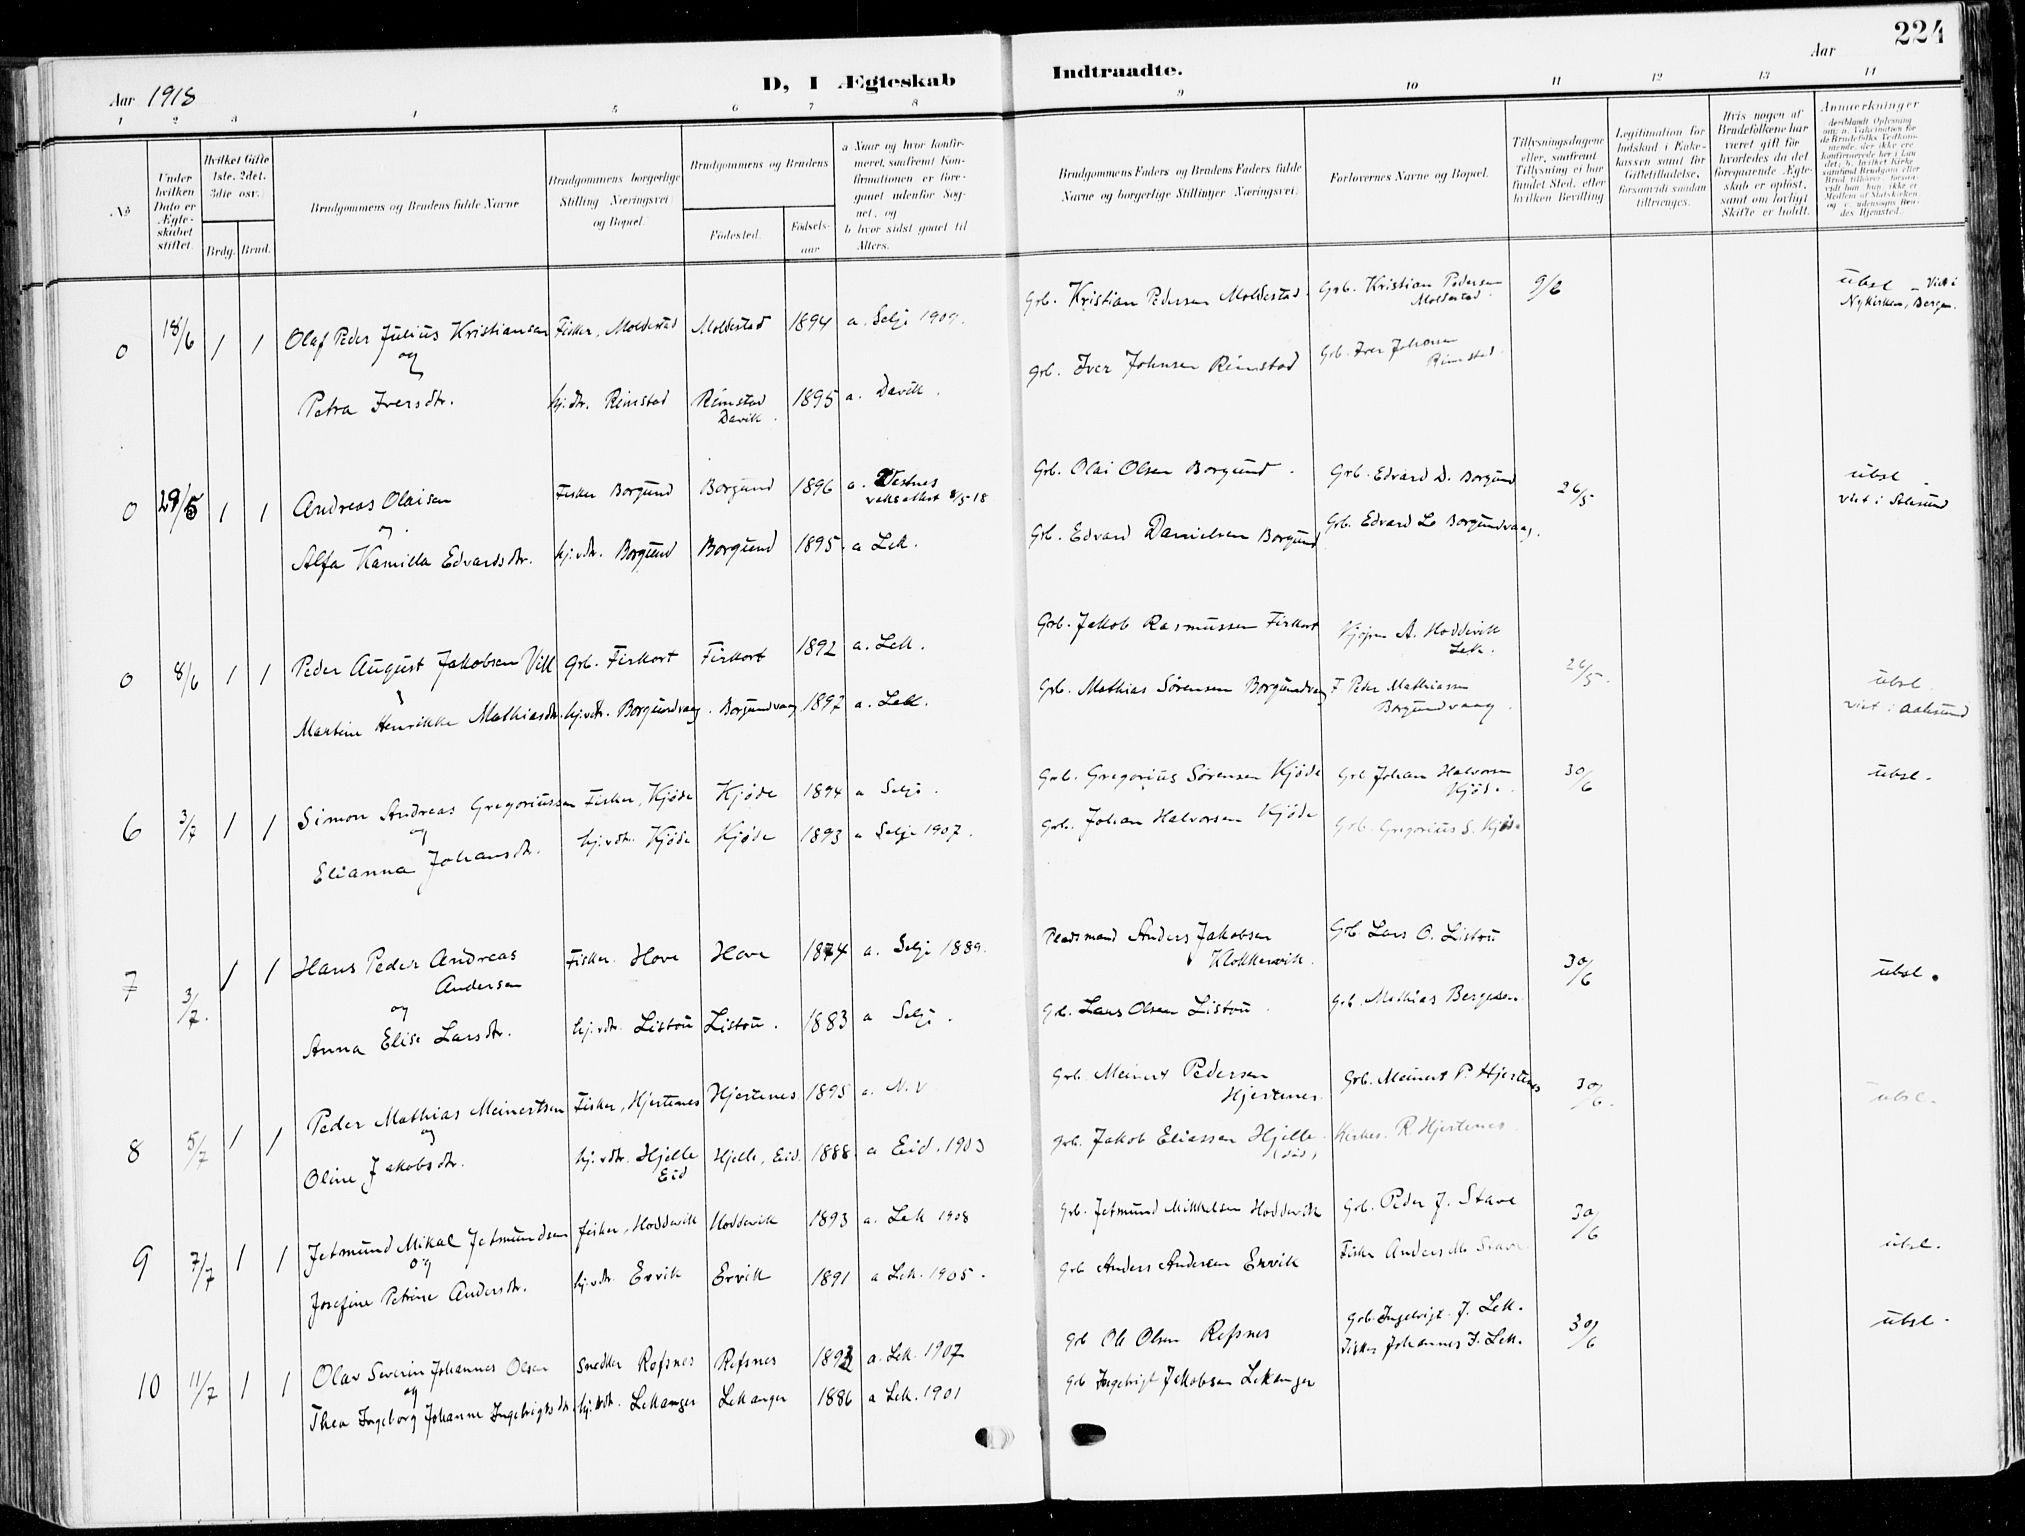 Aar 1918
D, I Ægteskab
Indtraadte.
Aar
224
1 2 3 4 5 6 7 8 9 10 11 12 13 14
No
Under hvilken Dato er Ægteskabet stiftet.
Hvilket Gifte 1ste. 2det. 3die osv.
Brdg. Brud.
Brudgommens og Brudens fulde Navne
Brudgommens borgerlige Stilling Næringsvei og Bopæl.
Brudgommens og Brudens
Födested.
Födsels-aar
a Naar og hvor konfirmeret, saafremt Konfirmationen er foregaaet udenfor Sognet, og
b hvor sidst gaaet til Alters.
Brudgommens Faders og Brudens Faders fulde Navne og borgerlige Stillinger Næringsvei.
Forlovernes Navne og Bopæl.
Tillysningsdagene eller, saafremt Tillysning ei har fundet Sted, efter hvilken Bevilling
Legitimation for Indskud i Enkekassen samt for Giftetilladelse, forsaavidt saadan tiltrænges.
Hvis nogen af Brudefolkene har været gift før hvorledes da det foregaaende Ægteskab er opløst, samt om lovligt Skifte er holdt.
Anmærkninger
0 18/6 1 1 Olaf Peder Julius Kristiansen Fisker, Moldestad Moldestad 1894 a. Selje 1909. Grb. Kristian Pedersen Moldestad. Grb. Kristian Pedersen Moldestad. 9/6 ubsl - Viet i Nykirken, Bergen.
og
Petra Iversdtr. hj.dtr. Rimstad Rimstad Davik. 1895 a. Davik. Grb. Iver Johnsen Rimstad Grb. Iver Johnsen Rimstad.
0 29/5 1 1 Andreas Olaisen Fisker Borgund Borgund 1896 a. Vestnes 8/5-18 Grb. Olai Olsen Borgund. Grb. Edvard D. Borgund 26/5 ubsl - viet i Aalesund
Alfa Kamilla Edvardsdtr. hj.vdtr. Borgund Borgund 1895. a Lek. Grb. Edvard Danielsen Borgund Grb. Edvard Borgundvaag.
0 8/6 1 1 Peder August Jakobsen Vik Grb. Firkort Firkort 1892 a. Lek. Grb. Jakob Rasmussen Firkort A. Hoddevik Lek. 26/5. ubsl. viet i Aalesund
Martine Henrikke Mathiasdtr. hj.vdtr. Borgundvaag. Borgundvaag 1897 a. Lek. Grb. Mathias Sørensen Borgundvaag F. Peder Mathiassen Borgundvaag.
6 3/7 1 1 Simon Andreas Gregoriussen Fisker, Kjøde Kjøde 1894 a Selje. Grb. Gregorius Sørensen Kjøde Grb Johan Halvorsen Kjøde. 30/6 ubsl.
og
Elianna Johansdtr. hj.vdtr. Kjøde Kjøde 1893 a Selje 1907. Grb. Johan Halvorsen Kjøde Grb. Gregorius S. Kjøde
7 3/7. 1 1 Hans Peder Andreas Andersen Fisker. Hove Hove 1874 a. Selje 1889. Pladsmand Anders Jakobsen Klokkervik. Grb. Lars O. Listou 30/6 ubsl.
og
Anna Elise Larsdtr. hj.vdtr. Listou Listou. 1883 a Selje. Grb. Lars Olsen Listou. Grb. Mathias Bergesen.
8 5/7 1 1 Peder Mathias Meinertsen Fisker, Hjertenes Hjertenes 1895 a. N.V. Grb. Meinert Pedersen Hjertenes. Grb. Meinert P. Hjertenes 30/6. ubsl.
og
Oline Jakobsdtr. hj.vdtr. Hjelle Eid Hjelle, Eid. 1888. a Eid. 1903 Grb. Jakob Eliassen Hjelle. (død) Kirkes. R. Hjertenes.
9 7/7 1 1 Jetmund Mikal Jetmundsen fisker, Hoddevik Hoddevik 1893 a. Lek 1908 Grb. Jetmund Mikkelsen Hoddevik Grb. Peder J. Stave 30/6 ubsl.
og
Josefine Petrine Andersdtr. hj.vdtr. Ervik Ervik 1891 a Lek. 1905. Grb Anders Andersen Ervik Fisker Anders M. Stave.
10 11/7 1 1 Olav Severin Johannes Olsen Snedker Refsnes Refsnes 1892 a. Lek. 1907 Grb Ole Olsen Refsnes Grb. Ingebrigt J. Lek. 30/6 ubsl.
og
Thea Ingeborg Johanne Ingebrigtsdtr. hj.vdtr. Lekanger Lekanger 1886 a Lek. 1901 Grb Ingebrigt Jakobsen Lekanger Fisker Johannes I. Lek.